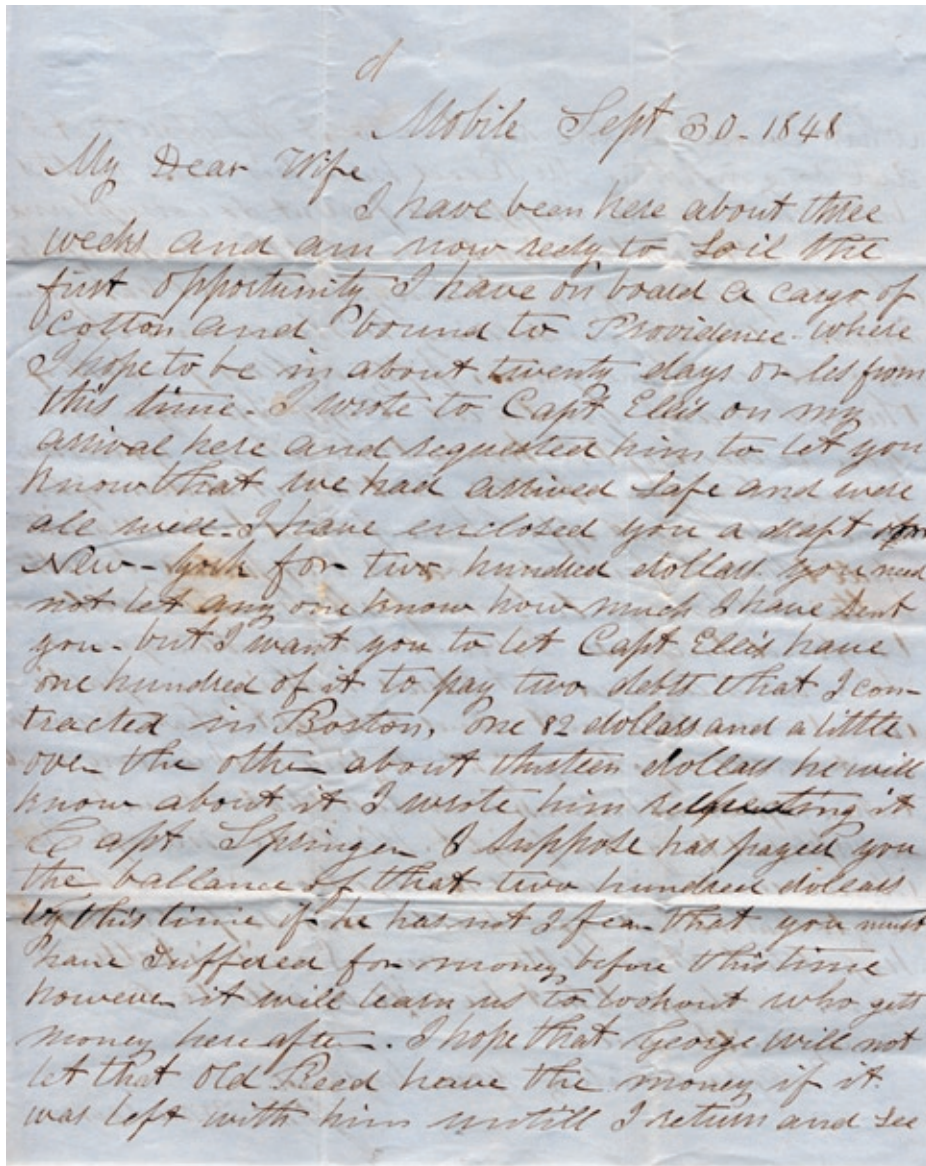 d
Mobile Sept 30 - 1848
My Dear Wife
I have been here about three
weeks and am now redy to Sail the
first opportunity I have on board a cargo of
Cotton and bound to Providence where
I hope to be in about twenty days or les from
this time - I wrote to Capt Ellis on my
arrival here and requested him to let you
know that we had arrived Safe and were
all well - I have enclosed you a draft
New - York for two hundred dollars you need
not let any one know how much I have Sent
you - but I want you to let Capt Ellis have
one hundred of it to pay two debts that I con-
tracted in Boston, one 82 dollars and a little
over the other about thirteen dollars he will
know about it I wrote him requesting it
Capt Springer I suppose has payed you
the ballance of that two hundred dollars
by this time if he has not I fear that you must
have Suffered for money before this time
however it will learn us to lookout who gets
money here after. I hope that George will not
let that old Reed have the money if it
was left with him untill I return and See